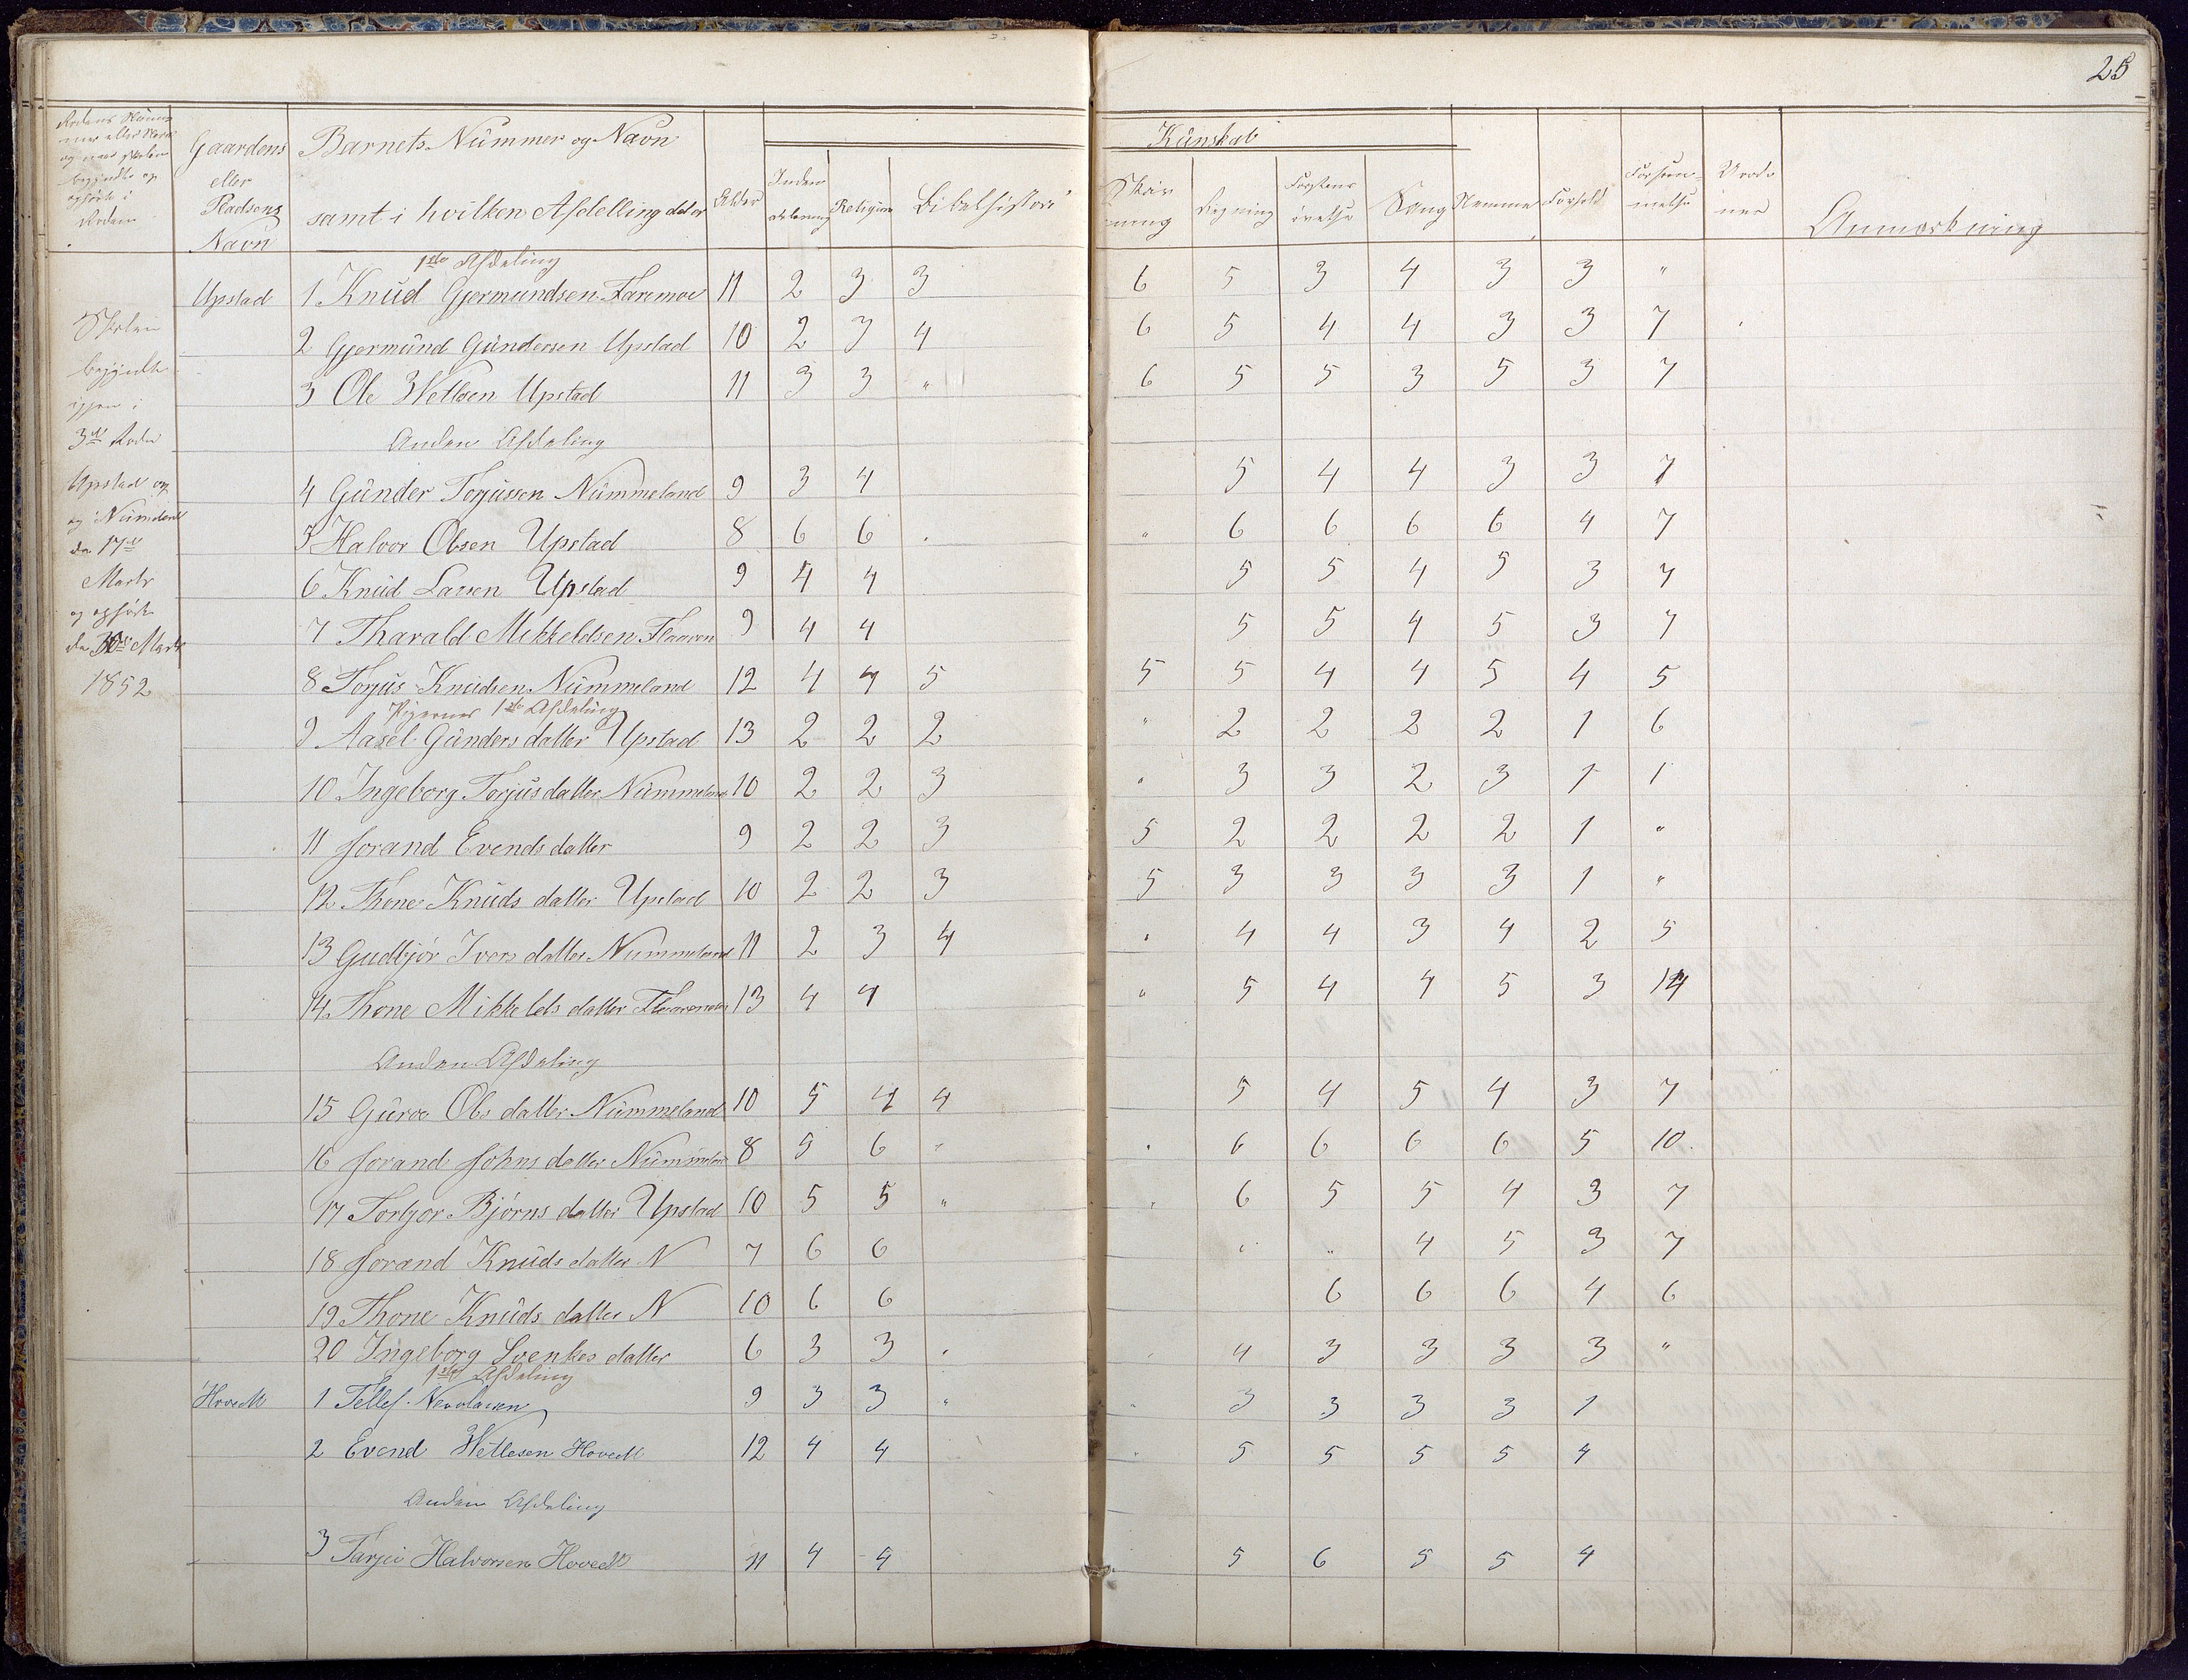 25
Gaardens eller Pladsens Navn
Barnets Nummer og Navn samt i hvilken Afdelling det er
Alder
Religion
Bibelhistorie
Kunskab
Regning
Sang
Nemme
Forhold
Anmærkning
Skolen
begyndte
igjen i
3die Rode
Upstad og
den 17de
Marts
og ophørte
1852
1ste Afdeling
Upstad 1 Knud Gjermundsen Faremoe 11 2 3 3 6 5 3 4 3 3 "
2 Gjermund Gundersen Upstad 10 2 3 4 6 5 4 4 3 3 7
3 Ole Wetlesen Upstad 11 3 3 " 6 5 5 3 5 3 7
Anden Afdeling
4 Gunder Torjussen Nummeland 9 3 4 5 4 4 3 3 7
5 Halvor Olsen Upstad 8 6 6 . " 6 6 6 6 4 7
6 Knud Larsen Upstad 9 4 4 5 5 4 5 3 7
7 Tharald Mikkeldsen 9 4 4 5 5 4 5 3 7
8 Torjus Knudsen Nummeland 12 4 4 5 5 5 4 4 5 4 5
Pigernes 1ste Afdeling
9 Aasel Gunders datter Upstad 13 2 2 2 " 2 2 2 2 1 6
10 Ingeborg Torjus datter 10 2 2 3 " 3 3 2 3 1 1
11 Jorand Evends datter 9 2 2 3 5 2 2 2 2 1 "
12 Thone Knuds datter Upstad 10 2 2 3 5 3 3 3 3 1 "
13 Gudbjør Ivers datter Nummeland 11 2 3 4 " 4 4 3 4 2 5
14 Thone Mikkels datter 13 4 4 " 5 4 4 5 3 14
Anden Afdeling
15 Guroe Ols datter Nummeland 10 5 4 4 5 4 5 4 3 7
16 Jorand Johns datter 8 5 6 " . 6 6 6 6 5 10.
17 Torbjor Bjørns datter Upstad 10 5 5 " " 6 5 5 4 3 7
18 Jorand Knuds datter N 7 6 6 " " 4 5 3 7
19 Thone Knuds datter N 10 6 6 6 6 6 4 6
20 Ingeborg Svenkes datter 6 3 3 . 4 3 3 3 3 "
1ste Afdeling
1 Tellef 9 3 3 " " 3 3 3 3 1
2 Evend Wetlesen 12 4 4 " 5 5 5 5 4
Anden Afdeling
3 Tarjei Halvorsen 11 4 4 5 6 5 5 4